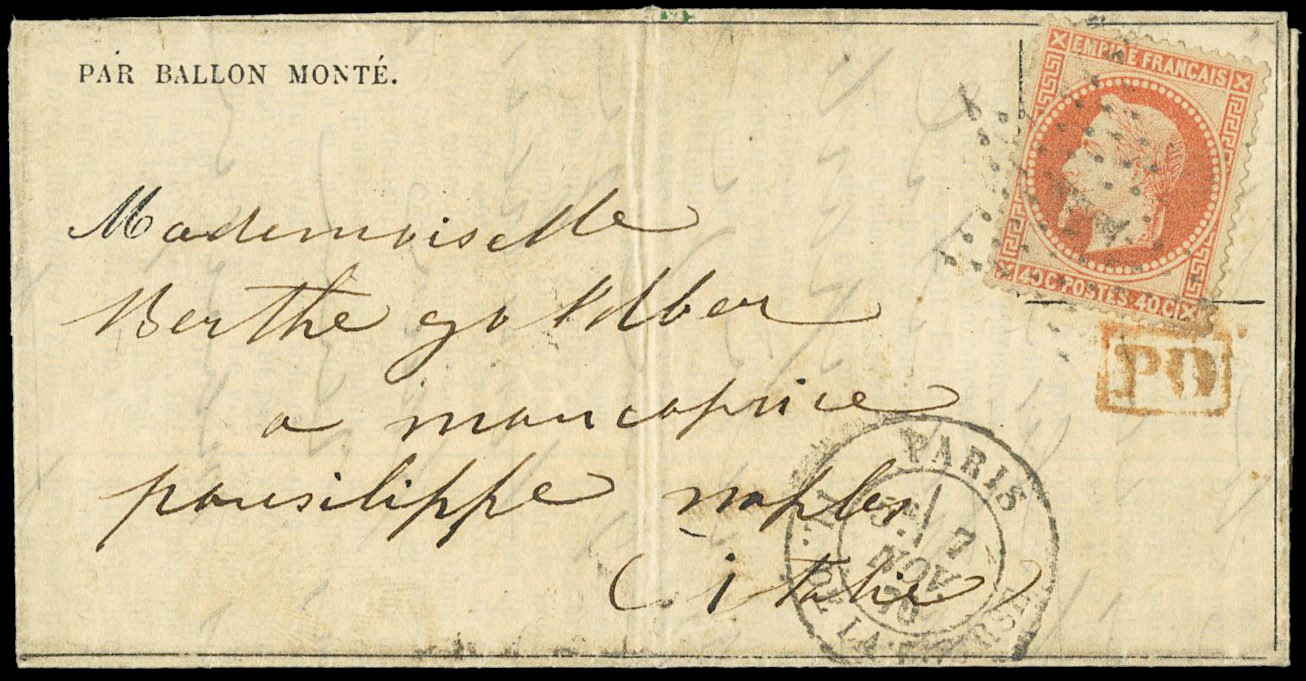 PAR BALLON MONTÉ.
EMPIRE FRANÇAIS
40C POSTES 40C
PD
Mademoiselle
Berthe goldber
a moncaprice
pousilippe naples
(italie)
PARIS
7
NOV.
70
PL. DE LA BOURSE